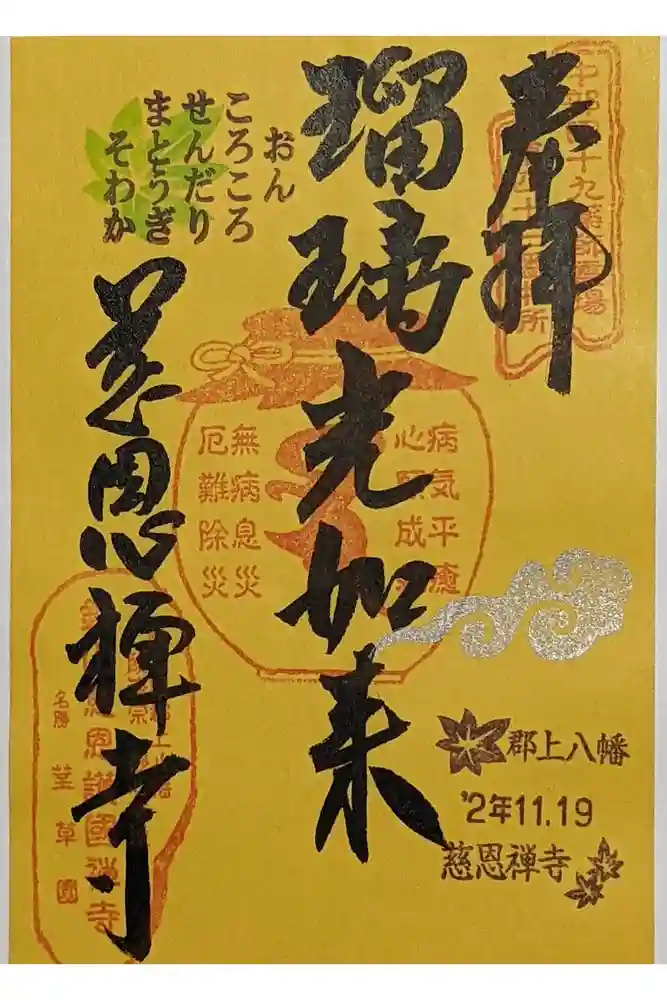 奉拝
中部四十九薬師霊場
瑠璃光如来
おん
ころころ
せんだり
まとうぎ
そわか
病気平癒
心願成
無病息災
厄難除災
慈恩禅寺
慈恩護國禅寺
名勝 荎草園
郡上八幡
'2年11.19
慈恩禅寺